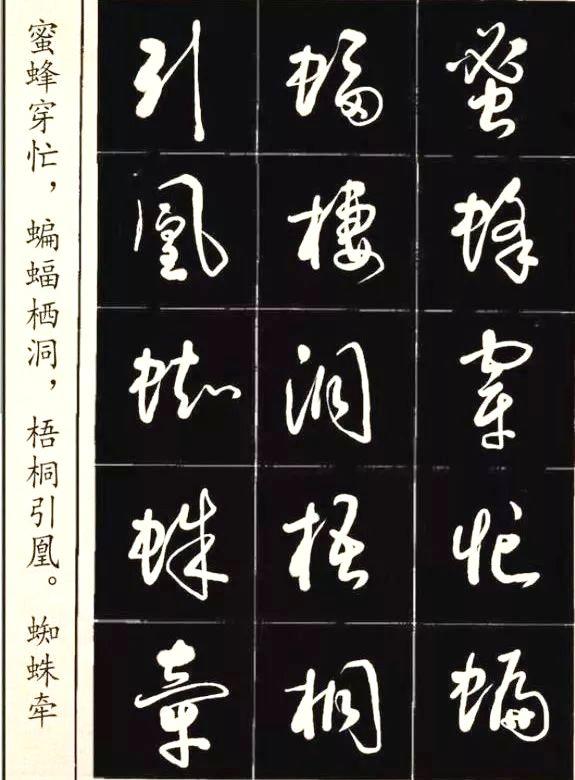 蜜蜂穿忙
蝙
蝠棲洞梧桐
引凰蜘蛛牽
蜜蜂穿忙，蝙蝠栖洞，梧桐引凰。蜘蛛牵